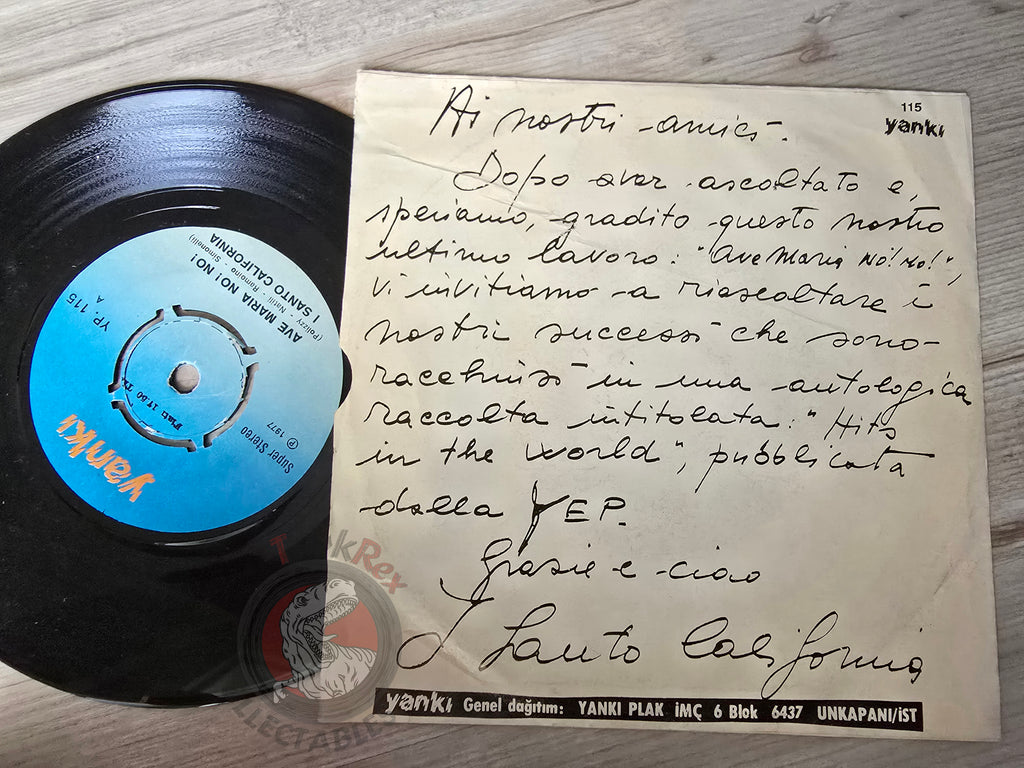 115
yankı
Ai nostri amici.
Dopo aver ascoltato e,
speriamo, gradito questo nostro
ultimo lavoro: "Ave Maria NO! NO!",
vi invitiamo a riascoltare i
nostri successi che sono
racchiusi in una antologica
raccolta intitolata: "Hits
in the world", pubblicata
dalla YEP.
Grazie e ciao
I Santo California
yankı Genel dağıtım: YANKI PLAK İMÇ 6 Blok 6437 UNKAPANI/İST
yankı
Super Stereo
℗ 1977
YP. 115
A
AVE MARIA NO! NO!
I SANTO CALIFORNIA